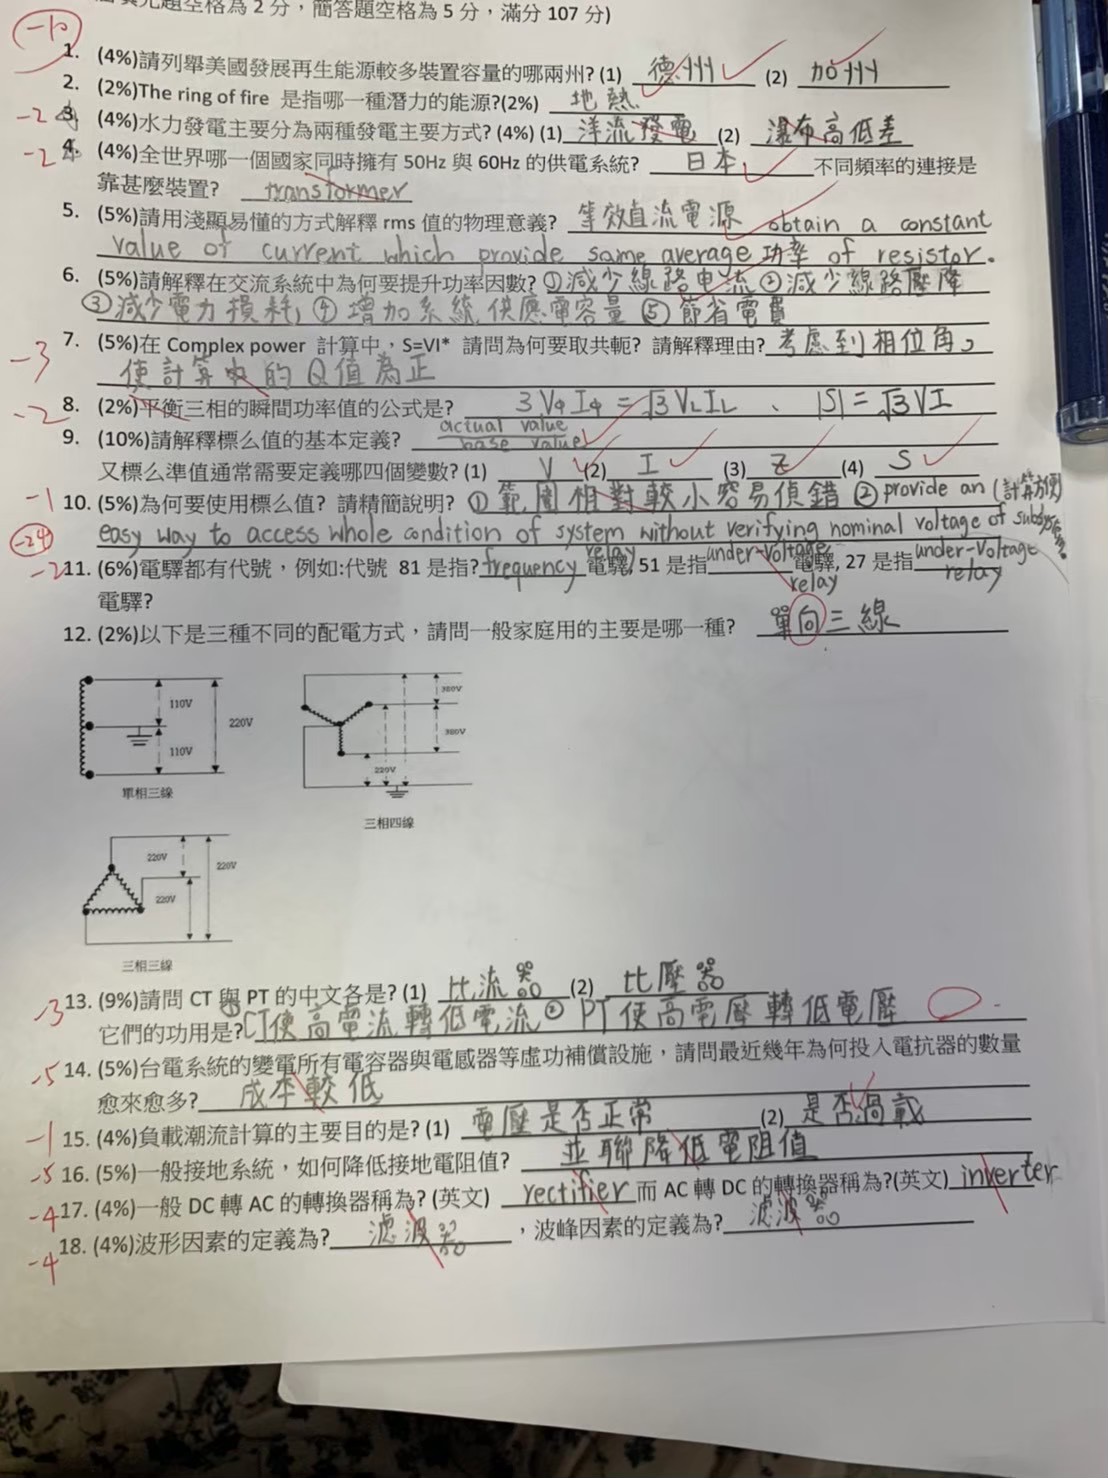 空格為 2 分，簡答題空格為 5 分，滿分 107 分)
-10
1. (4%)請列舉美國發展再生能源較多裝置容量的哪兩州? (1) 德州 (2) 加州
2. (2%)The ring of fire 是指哪一種潛力的能源?(2%) 地熱
-2 3. (4%)水力發電主要分為兩種發電主要方式? (4%) (1) 洋流發電 (2) 瀑布高低差
-2 4. (4%)全世界哪一個國家同時擁有 50Hz 與 60Hz 的供電系統? 日本 不同頻率的連接是
靠甚麼裝置? transformer
5. (5%)請用淺顯易懂的方式解釋 rms 值的物理意義? 等效直流電源 obtain a constant
value of current which provide same average 功率 of resistor.
6. (5%)請解釋在交流系統中為何要提升功率因數? ①減少線路电流 ②減少線路壓降
③減少電力損耗 ④增加系統供應電容量 ⑤節省電費
-3 7. (5%)在 Complex power 計算中，S=VI* 請問為何要取共軛? 請解釋理由? 考慮到相位角,
使計算中的 Q值為正
-2 8. (2%)平衡三相的瞬間功率值的公式是? 3VφIφ = √3 VLIL 、 |S| = √3 VI
9. (10%)請解釋標么值的基本定義? actual value / base value
又標么準值通常需要定義哪四個變數? (1) V (2) I (3) Z (4) S
-1 10. (5%)為何要使用標么值? 請精簡說明? ①範圍相對較小容易偵錯 ② provide an (計算方便)
-24 easy way to access whole condition of system without verifying nominal voltage of
-2 11. (6%)電驛都有代號，例如:代號 81 是指? frequency relay 電驛, 51 是指 under-voltage relay 電驛, 27 是指 under-Voltage relay
電驛?
12. (2%)以下是三種不同的配電方式，請問一般家庭用的主要是哪一種? 單向三線
110V
110V
220V
單相三線
380V
380V
220V
三相四線
220V
220V
220V
三相三線
-3 13. (9%)請問 CT 與 PT 的中文各是? (1) 比流器 (2) 比壓器
它們的功用是? ①CT使高電流轉低電流 ② PT使高電壓轉低電壓
-5 14. (5%)台電系統的變電所有電容器與電感器等虛功補償設施，請問最近幾年為何投入電抗器的數量
愈來愈多? 成本較低
-1 15. (4%)負載潮流計算的主要目的是? (1) 電壓是否正常 (2) 是否過載
-5 16. (5%)一般接地系統，如何降低接地電阻值? 並聯降低電阻值
-4 17. (4%)一般 DC 轉 AC 的轉換器稱為? (英文) rectifier 而 AC 轉 DC 的轉換器稱為?(英文) inverter
-4 18. (4%)波形因素的定義為? 濾波器 ，波峰因素的定義為? 濾波器